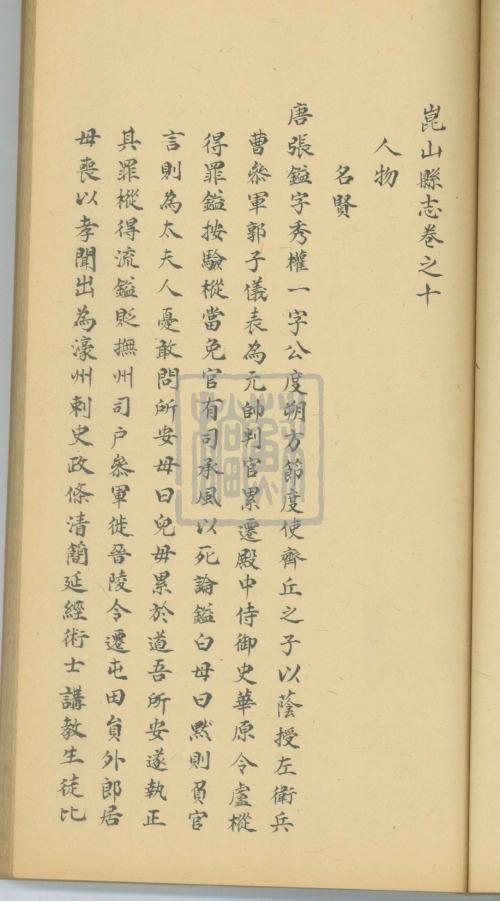 崑山縣志卷之十
人物
名賢
唐張鎰字秀權一字公度朔方節度使齊丘之子以蔭授左衛兵
曹參軍郭子儀表為元帥判官累遷殿中侍御史華原令盧樅
得罪鎰按驗樅當免官有司承風以死論鎰白母曰黙則負官
言則為太夫人憂敢問所安母曰兒毋累於道吾所安遂執正
其罪樅得流鎰貶撫州司户參軍徙晉陵令遷屯田員外郎居
母喪以孝聞出為濠州刺史政條清簡延經術士講教生徒比